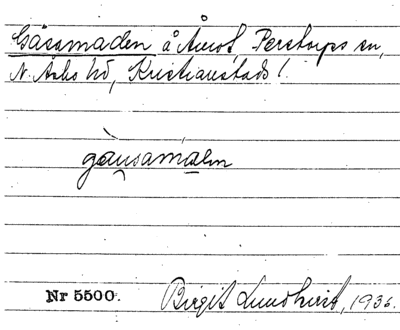 Gåsamaden å Åmot, Perstorps sn,
N. Åsbo hd, Kristianstads l.
gàusamàden
Nr 5500. Birgit Lundkvist, 1936.